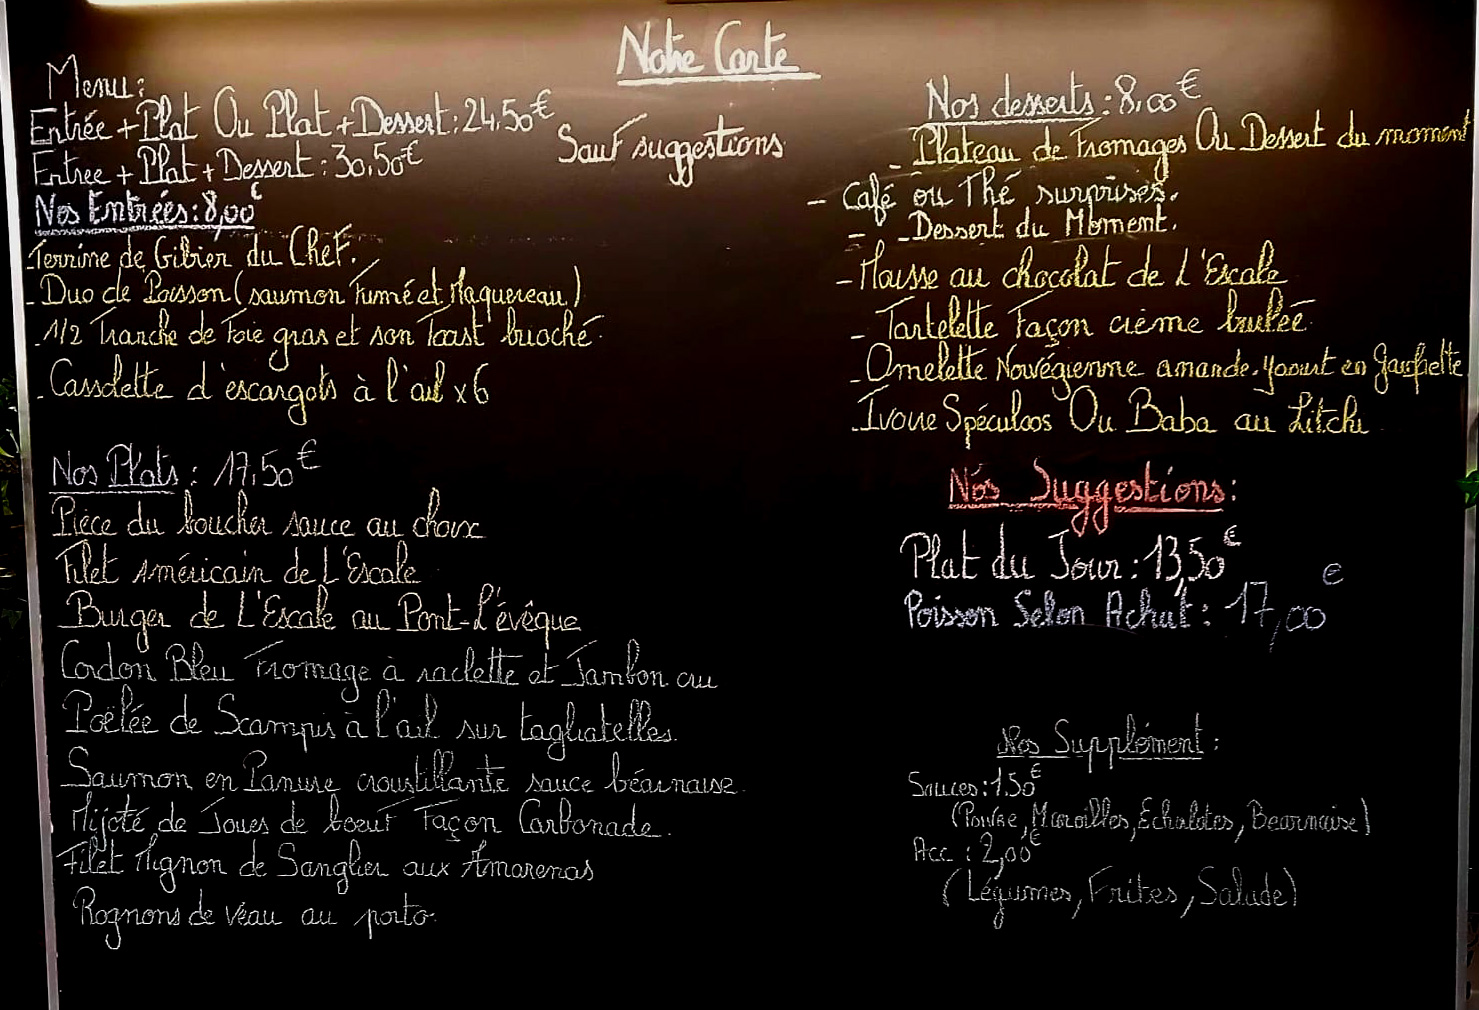 Notre Carte
Menu:
Entrée + Plat Ou Plat + Dessert: 24,50€
Entree + Plat + Dessert : 30,50€
Sauf suggestions
Nos Entrées: 8,00€
- Terrine de Gibier du Chef.
- Duo de Poisson (saumon Fumé et Maquereau)
- 1/2 Tranche de Foie gras et son Toast brioché.
- Cassolette d'escargots à l'ail x 6
Nos Plats : 17,50€
Pièce du boucher sauce au choix
Filet Américain de L'Escale
Burger de L'Escale au Pont-L'évêque
Cordon Bleu Fromage à raclette et Jambon cru
Poëlée de Scampis à l'ail sur tagliatelles.
Saumon en Panure croustillante sauce béarnaise.
Mijoté de Joues de boeuf Façon Carbonade.
Filet Mignon de Sanglier aux Amarenas
Rognons de veau au porto.
Nos desserts : 8,00€
- Plateau de Fromages Ou Dessert du moment
- Café ou Thé surprises.
- - Dessert du Moment.
- Mousse au chocolat de L'Escale
- Tartelette Façon crème brulée
- Omelette Norvégienne amande-yaourt en Gaufrette
- Ivoire Spéculoos Ou Baba au Litchi
Nos Suggestions:
Plat du Jour : 13,50€
Poisson Selon Achat : 17,00€
Nos Supplément :
Sauces : 1.50€
(Poivre, Maroilles, Echalotes, Bearnaise)
Acc : 2,00€
(Légumes, Frites, Salade)